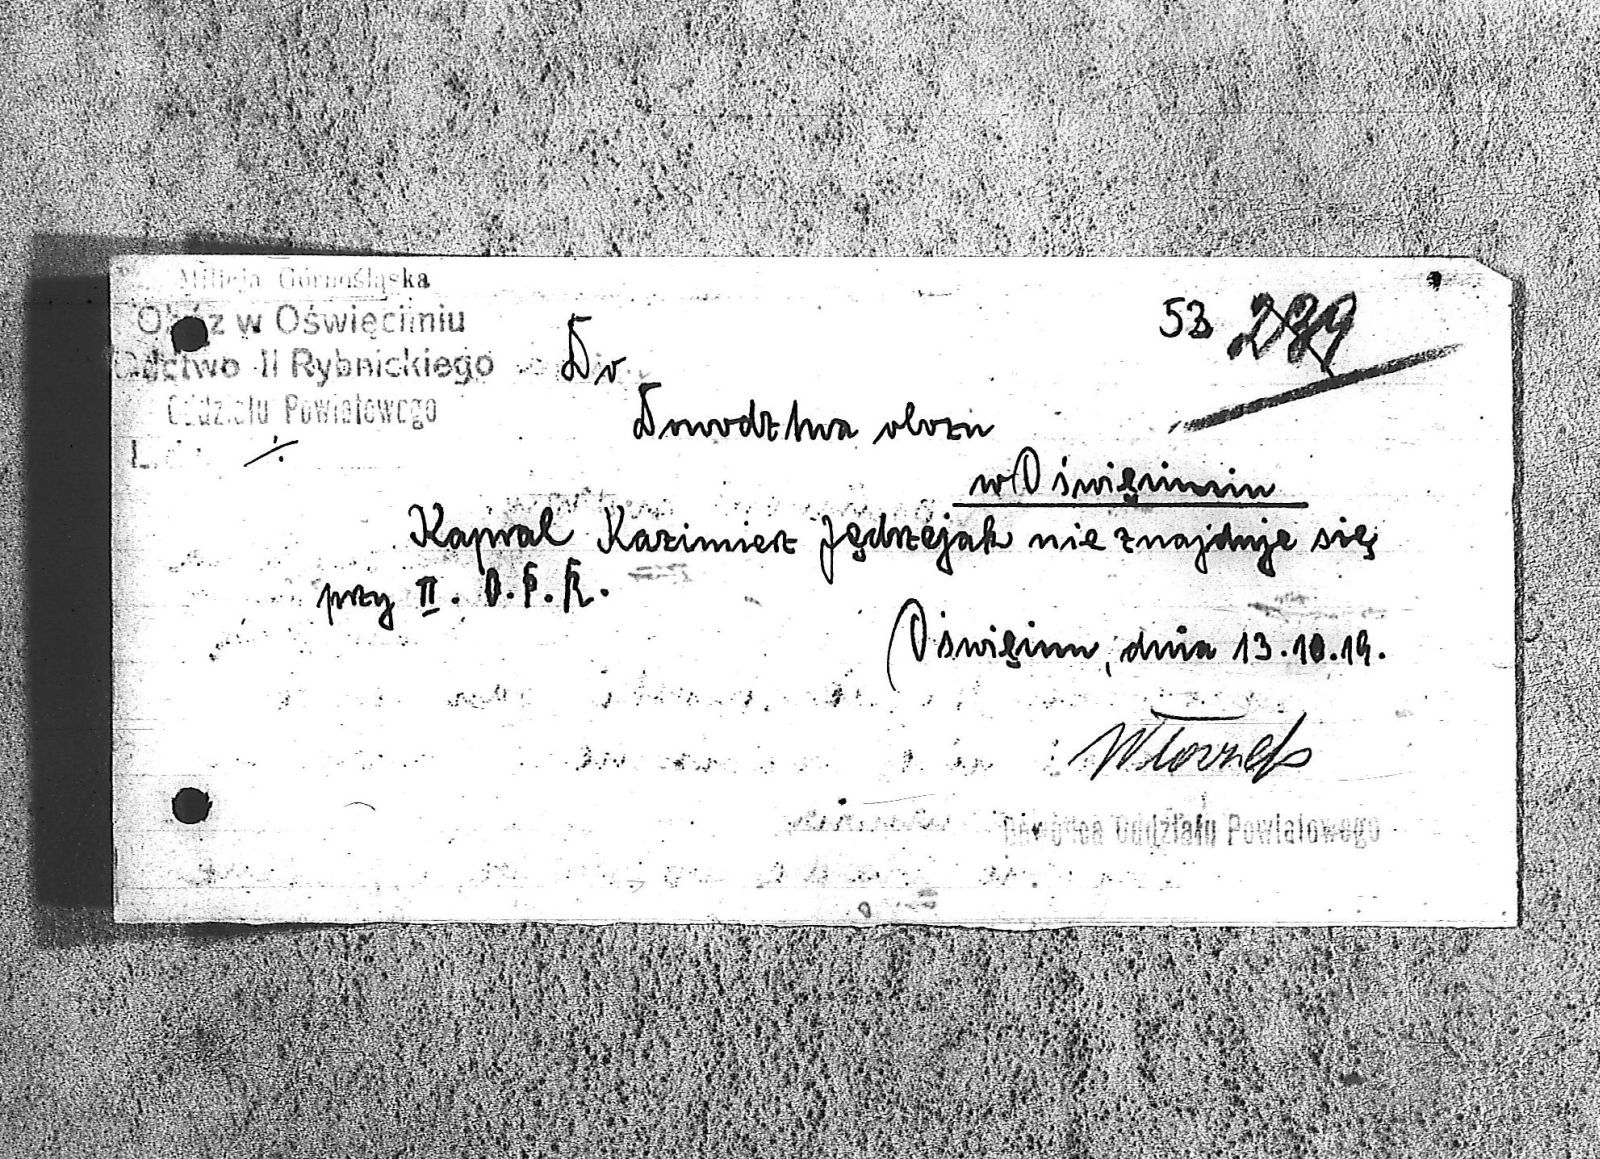 Milicja Górnośląska
Obóz w Oświęcimiu
Ddctwo II Rybnickiego
Oddziału Powiatowego
53 239
Do
Dowodztwa obozu
w Oświęcimiu
Kapral Kazimierz Jędrzejak nie znajduje się
przy II. O.P.R.
Oświęcim, dnia 13.10.19.
Dowódca Oddziału Powiatowego